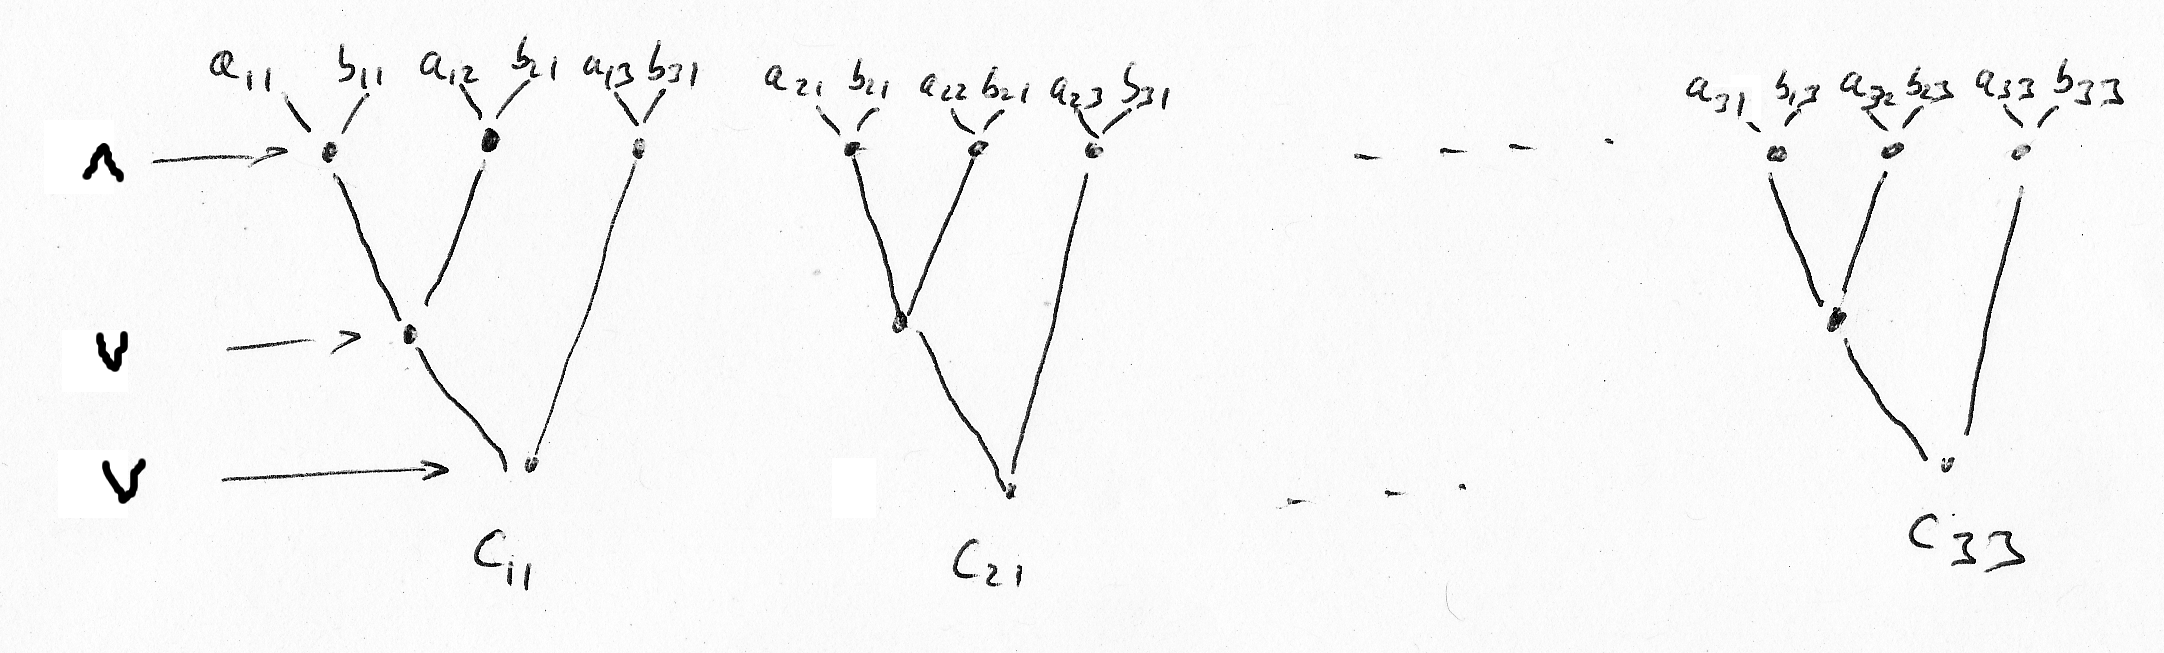 a11 b11 a12 b21 a13 b31 a21 b21 a22 b21 a23 b31 a31 b13 a32 b23 a33 b33
∧
∨
∨
C11 C21 C33